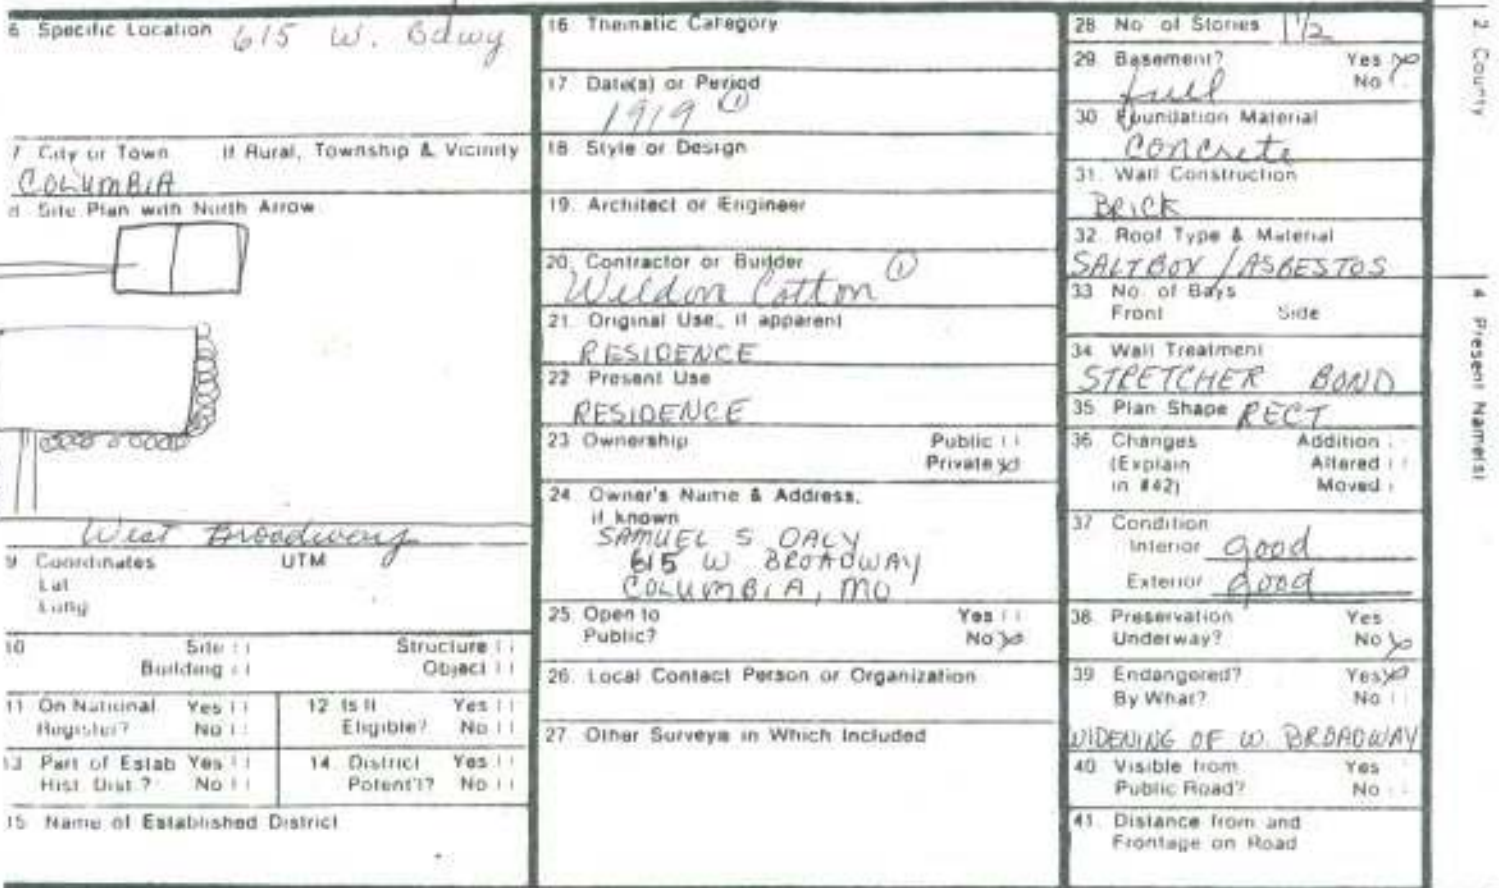 6 Specific Location 615 W. Bdwy
7 City or Town If Rural, Township & Vicinity
COLUMBIA
8 Site Plan with North Arrow
West Broadway
9 Coordinates UTM
Lat
Long
10 Site Structure
Building Object
11 On National Register? Yes No
12 Is It Eligible? Yes No
13 Part of Estab Hist. Dist.? Yes No
14 District Potent'l? Yes No
15 Name of Established District
16 Thematic Category
17 Date(s) or Period
1919 ①
18 Style or Design
19. Architect or Engineer
20. Contractor or Builder ①
Weldon Cotton
21 Original Use, if apparent
RESIDENCE
22 Present Use
RESIDENCE
23 Ownership Public
Private
24 Owner's Name & Address,
if known
SAMUEL S DALY
615 W BROADWAY
COLUMBIA, MO
25 Open to Yes
Public? No
26. Local Contact Person or Organization
27. Other Surveys in Which Included
28 No of Stories 1 1/2
29 Basement? Yes
full No
30 Foundation Material
Concrete
31. Wall Construction
BRICK
32 Roof Type & Material
SALTBOX / ASBESTOS
33 No. of Bays
Front Side
34 Wall Treatment
STRETCHER BOND
35 Plan Shape RECT
36 Changes Addition
(Explain Altered
in #42) Moved
37 Condition
Interior good
Exterior good
38 Preservation Yes
Underway? No
39 Endangered? Yes
By What? No
WIDENING OF W. BROADWAY
40 Visible from Yes
Public Road? No
41. Distance from and
Frontage on Road
2 County
4 Present Name(s)